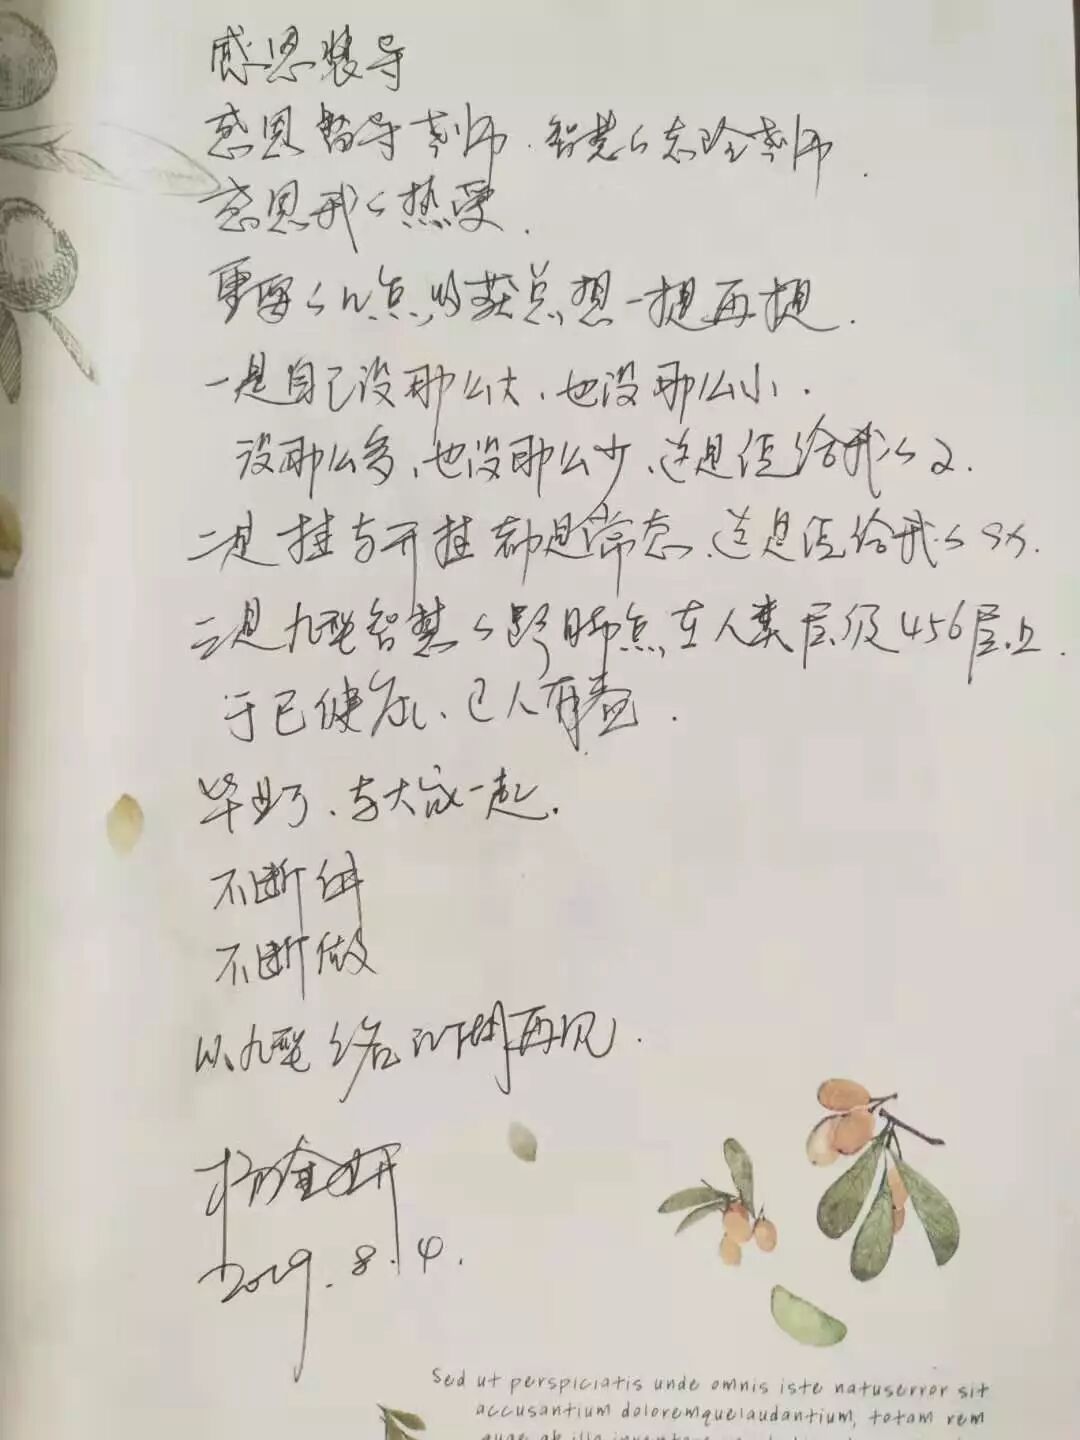 感恩裴导
感恩督导老师.智慧的志玲老师.
感恩我的热爱.
重要的几点收获总想一提再提.
一是自己没那么大、也没那么小.
没那么多、也没那么少、这是但给我的2.
二是挂与开挂都是常态、这是但给我的
三是九型智慧的跨脚点在人类层级456层上.
于己健康、己人有益.
毕业了、与大家一起.
不断
不断做
以九型之名 江湖再见.
杨金妍
2019.8.4.
Sed ut perspiciatis unde omnis iste natuserror sit
accusantium doloremquelaudantium, totam rem